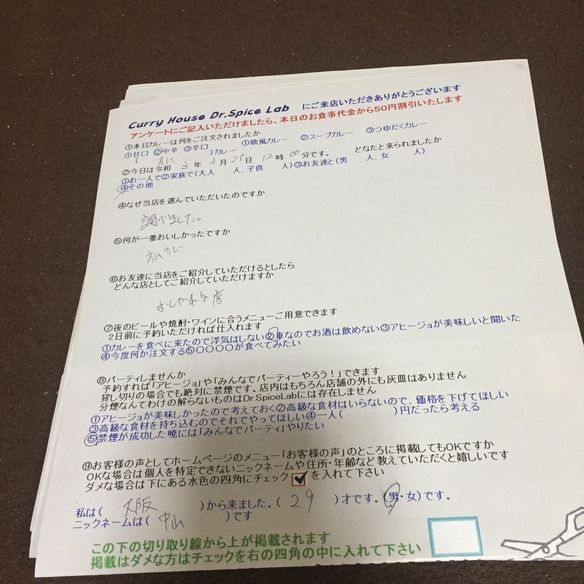 Curry House Dr.Spice Lab にご来店いただきありがとうございます
アンケートにご記入いただけましたら、本日のお食事代金から50円割引いたします
①本日カレーは何をご注文されましたか
①甘口 ②中辛 ③辛口)カレー ①欧風カレー ②スープカレー ③つゆだくカレー
②今日は令和 3 年 3 月 25 日 12 時 00 分です。 どなたと来られましたか
①お一人で②家族で(大人 人、子供 人)③お友達と(男 人、女 人)
④その他
④なぜ当店を選んでいただいたのですか
調べました。
⑤何が一番おいしかったですか
カレー
⑥お友達に当店をご紹介していただけるとしたら
どんな店としてご紹介していただけますか
おしゃれな店
⑦夜のビールや焼酎・ワインに合うメニューご用意できます
2日前に予約いただければ仕入れます
①カレーを食べに来たので浮気はしない②車なのでお酒は飲めない③アヒージョが美味しいと聞いた
④今度何か注文する⑤〇〇〇〇が食べてみたい
⑧パーティしませんか
予約すれば「アヒージョ」や「みんなでパーティーやろう!」できます
貸し切りの場合でも絶対に禁煙です。店内はもちろん店舗の外にも灰皿はありません
分煙なんてわけの解らないものはDr.SpiceLabには存在しません
①アヒージョが美味しかったので考えておく②高級な食材はいらないので、価格を下げてほしい
③高級な食材を持ち込むのでそれでやってほしい④一人( )円だったら考える
⑤禁煙が成功した暁には「みんなでパーティ」やりたい
⑨お客様の声としてホームページのメニュー「お客様の声」のところに掲載してもOKですか
OKな場合は個人を特定できないニックネームや住所・年齢など教えていただくと嬉しいです
ダメな場合は下にある水色の四角にチェック を入れて下さい
私は( 大阪 )から来ました。( 29 )才です。(男・女)です。
ニックネームは( 中山 )です
この下の切り取り線から上が掲載されます
掲載はダメな方はチェックを右の四角の中に入れて下さい